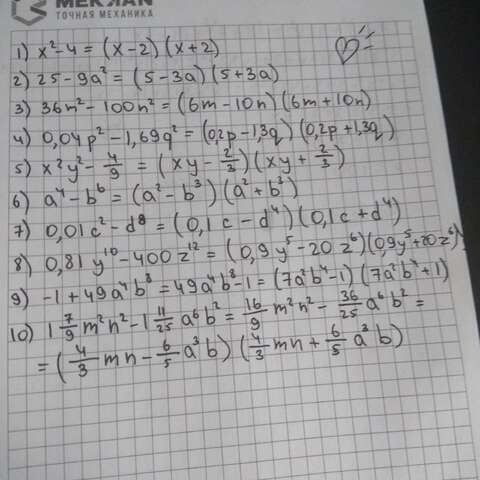 МЕККАН
ТОЧНАЯ МЕХАНИКА
1) x²-4 = (x-2)(x+2)
2) 25-9a² = (5-3a)(5+3a)
3) 36m²-100n² = (6m-10n)(6m+10n)
4) 0,04p²-1,69q² = (0,2p-1,3q)(0,2p+1,3q)
5) x²y²-4/9 = (xy-2/3)(xy+2/3)
6) a⁴-b⁶ = (a²-b³)(a²+b³)
7) 0,01c²-d⁸ = (0,1c-d⁴)(0,1c+d⁴)
8) 0,81y¹⁰-400z¹² = (0,9y⁵-20z⁶)(0,9y⁵+20z⁶)
9) -1+49a⁴b⁸ = 49a⁴b⁸-1 = (7a²b⁴-1)(7a²b⁴+1)
10) 1 7/9 m²n²-1 11/25 a⁶b² = 16/9 m²n²-36/25 a⁶b² =
= (4/3 mn-6/5 a³b)(4/3 mn+6/5 a³b)